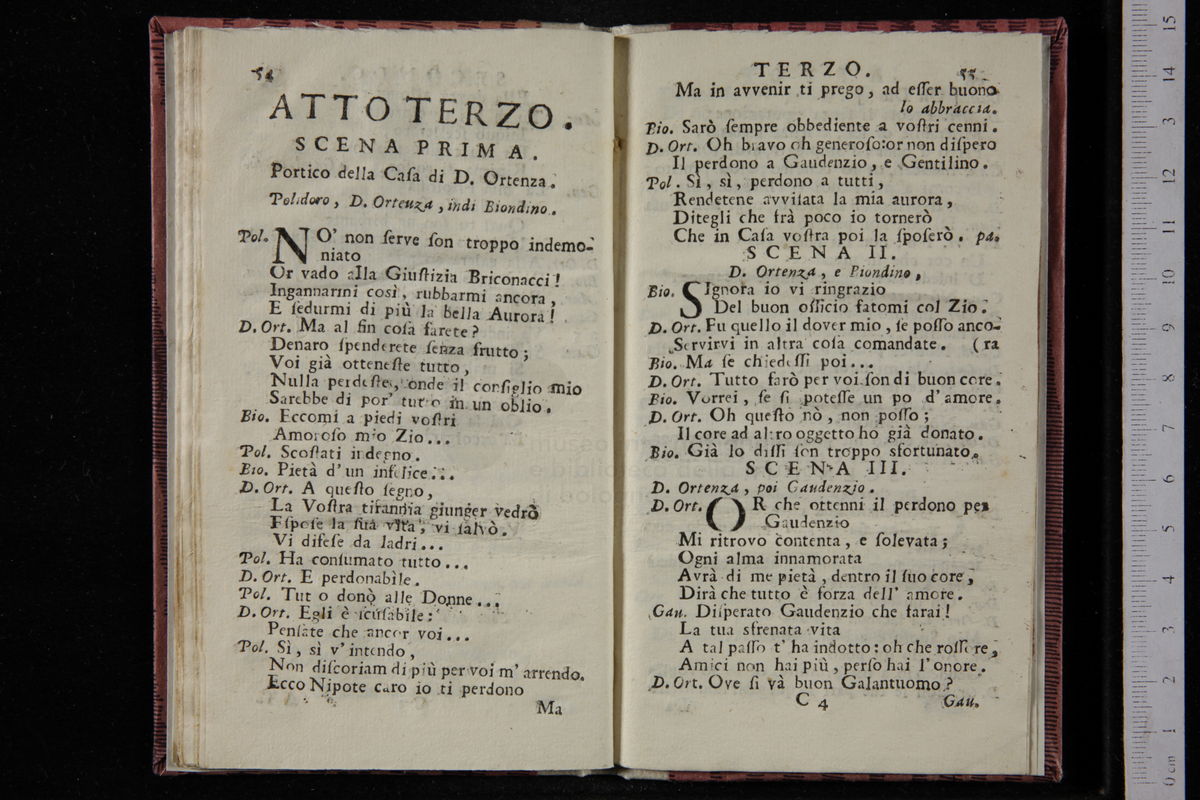 54
ATTO TERZO.
SCENA PRIMA.
Portico della Caſa di D. Ortenza.
Polidoro, D. Orteuza, indi Biondino.
Pol. NO' non ſerve ſon troppo indemo-
niato
Or vado alla Giuſtizia Briconacci!
Ingannarmi così, rubbarmi ancora,
E ſedurmi di più la bella Aurora!
D. Ort. Ma al fin coſa farete?
Denaro ſpenderete ſenza frutto;
Voi già otteneſte tutto,
Nulla perdeſte, onde il conſiglio mio
Sarebbe di por' tutto in un oblio.
Bio. Eccomi a piedi voſtri
Amoroſo mio Zio...
Pol. Scoſtati indegno.
Bio. Pietà d'un infelice...
D. Ort. A queſto ſegno,
La Voſtra tirannia giunger vedrò
Eſpoſe la ſua vita, vi ſalvò.
Vi difeſe da ladri...
Pol. Ha conſumato tutto...
D. Ort. E perdonabile.
Pol. Tut o donò alle Donne...
D. Ort. Egli è ſcuſabile:
Penſate che ancor voi...
Pol. Sì, sì v'intendo,
Non diſcoriam di più per voi m'arrendo.
Ecco Nipote caro io ti perdono
Ma
TERZO. 55
Ma in avvenir ti prego, ad eſſer buono
lo abbraccia.
Bio. Sarò ſempre obbediente a voſtri cenni.
D. Ort. Oh bravo oh generoſo: or non diſpero
Il perdono a Gaudenzio, e Gentilino.
Pol. Sì, sì, perdono a tutti,
Rendetene avviſata la mia aurora,
Ditegli che frà poco io tornerò
Che in Caſa voſtra poi la ſpoſerò. pa.
SCENA II.
D. Ortenza, e Biondino,
Bio. SIgnora io vi ringrazio
Del buon officio fatomi col Zio.
D. Ort. Fu quello il dover mio, ſe poſſo anco-
Servirvi in altra coſa comandate. (ra
Bio. Ma ſe chiedeſſi poi...
D. Ort. Tutto farò per voi ſon di buon core.
Bio. Vorrei, ſe ſi poteſſe un po d'amore.
D. Ort. Oh queſto nò, non poſſo;
Il core ad altro oggetto ho già donato.
Bio. Già lo diſſi ſon troppo sfortunato.
SCENA III.
D. Ortenza, poi Gaudenzio.
D. Ort. OR che ottenni il perdono per
Gaudenzio
Mi ritrovo contenta, e ſolevata;
Ogni alma innamorata
Avrà di me pietà, dentro il ſuo core,
Dirà che tutto è forza dell' amore.
Gau. Diſperato Gaudenzio che farai!
La tua sfrenata vita
A tal paſſo t'ha indotto: oh che roſſore,
Amici non hai più, perſo hai l'onore.
D. Ort. Ove ſi và buon Galantuomo?
C 4 Gau.